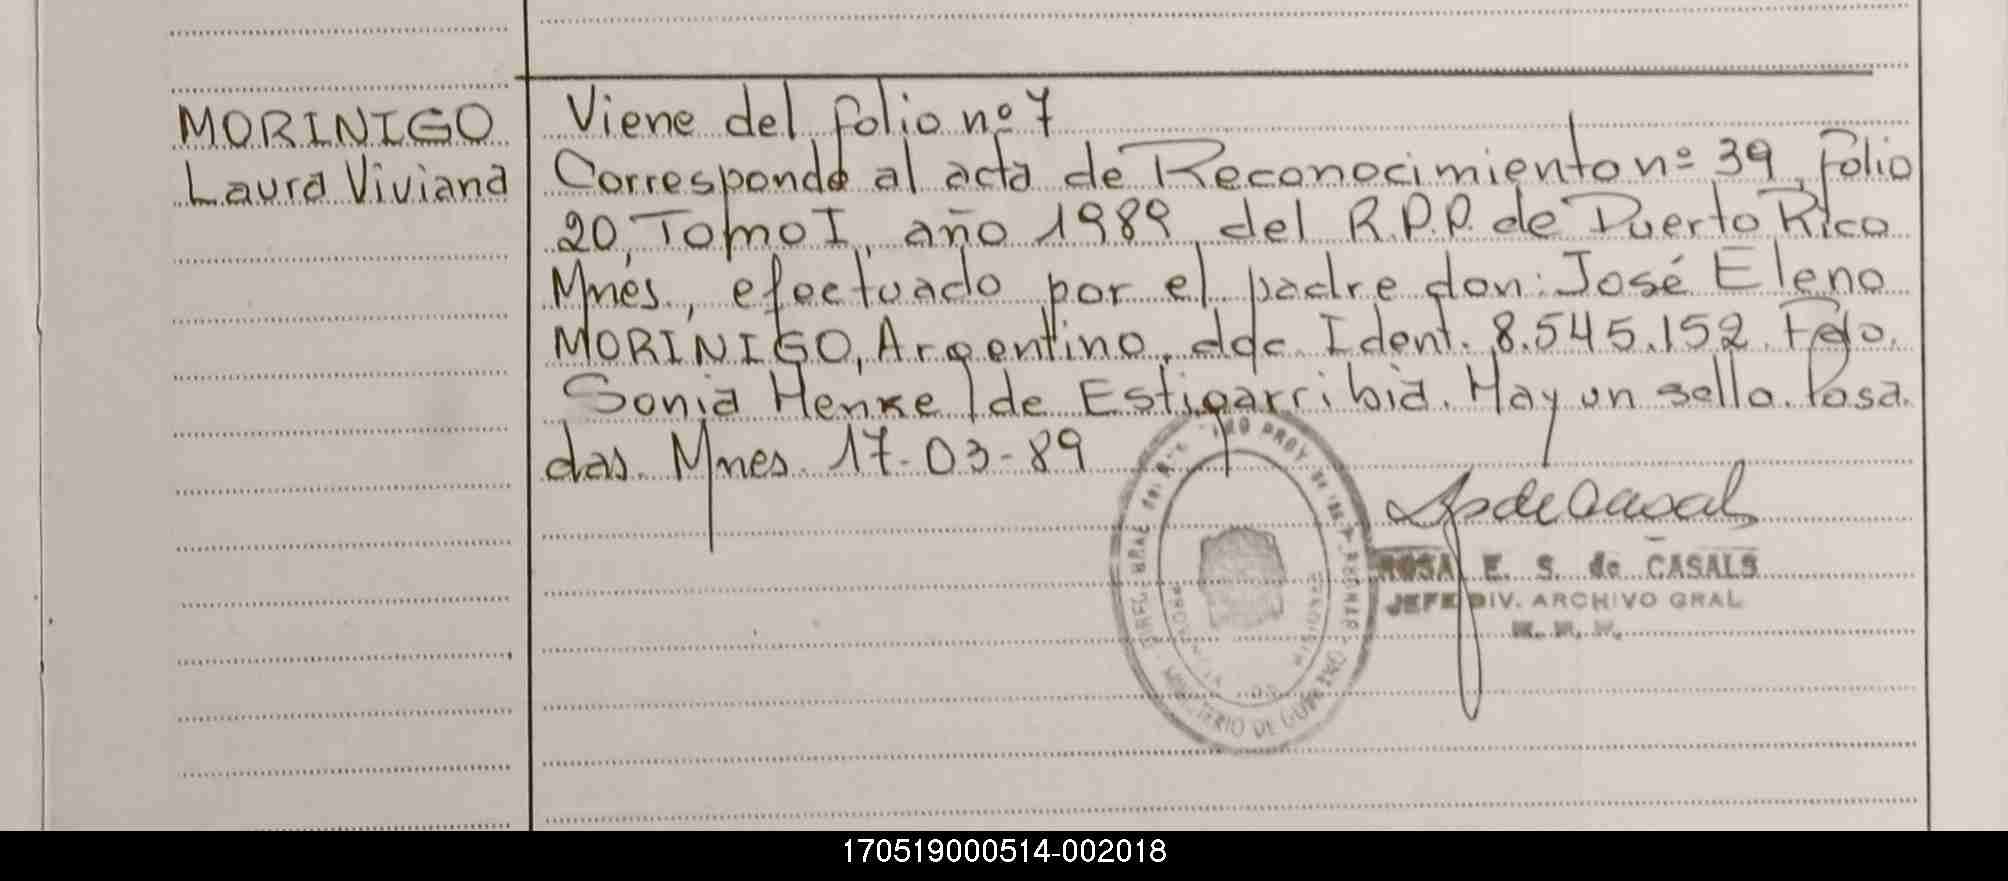 MORINIGO
Laura Viviana
Viene del folio nº 7
Corresponde al acta de Reconocimiento nº 39, folio
20, Tomo I, año 1989 del R.P.P. de Puerto Rico
Mnes., efectuado por el padre don: José Eleno
MORINIGO, Argentino, ddc. Ident. 8.545.152. Fdo.
Sonia Henke de Estigarribia. Hay un sello. Posa.
das. Mnes. 17-03-89
ROSA E. S. de CASALS
JEFE DIV. ARCHIVO GRAL
MINISTERIO DE GOBIERNO
PROVINCIA DE MISIONES
170519000514-002018